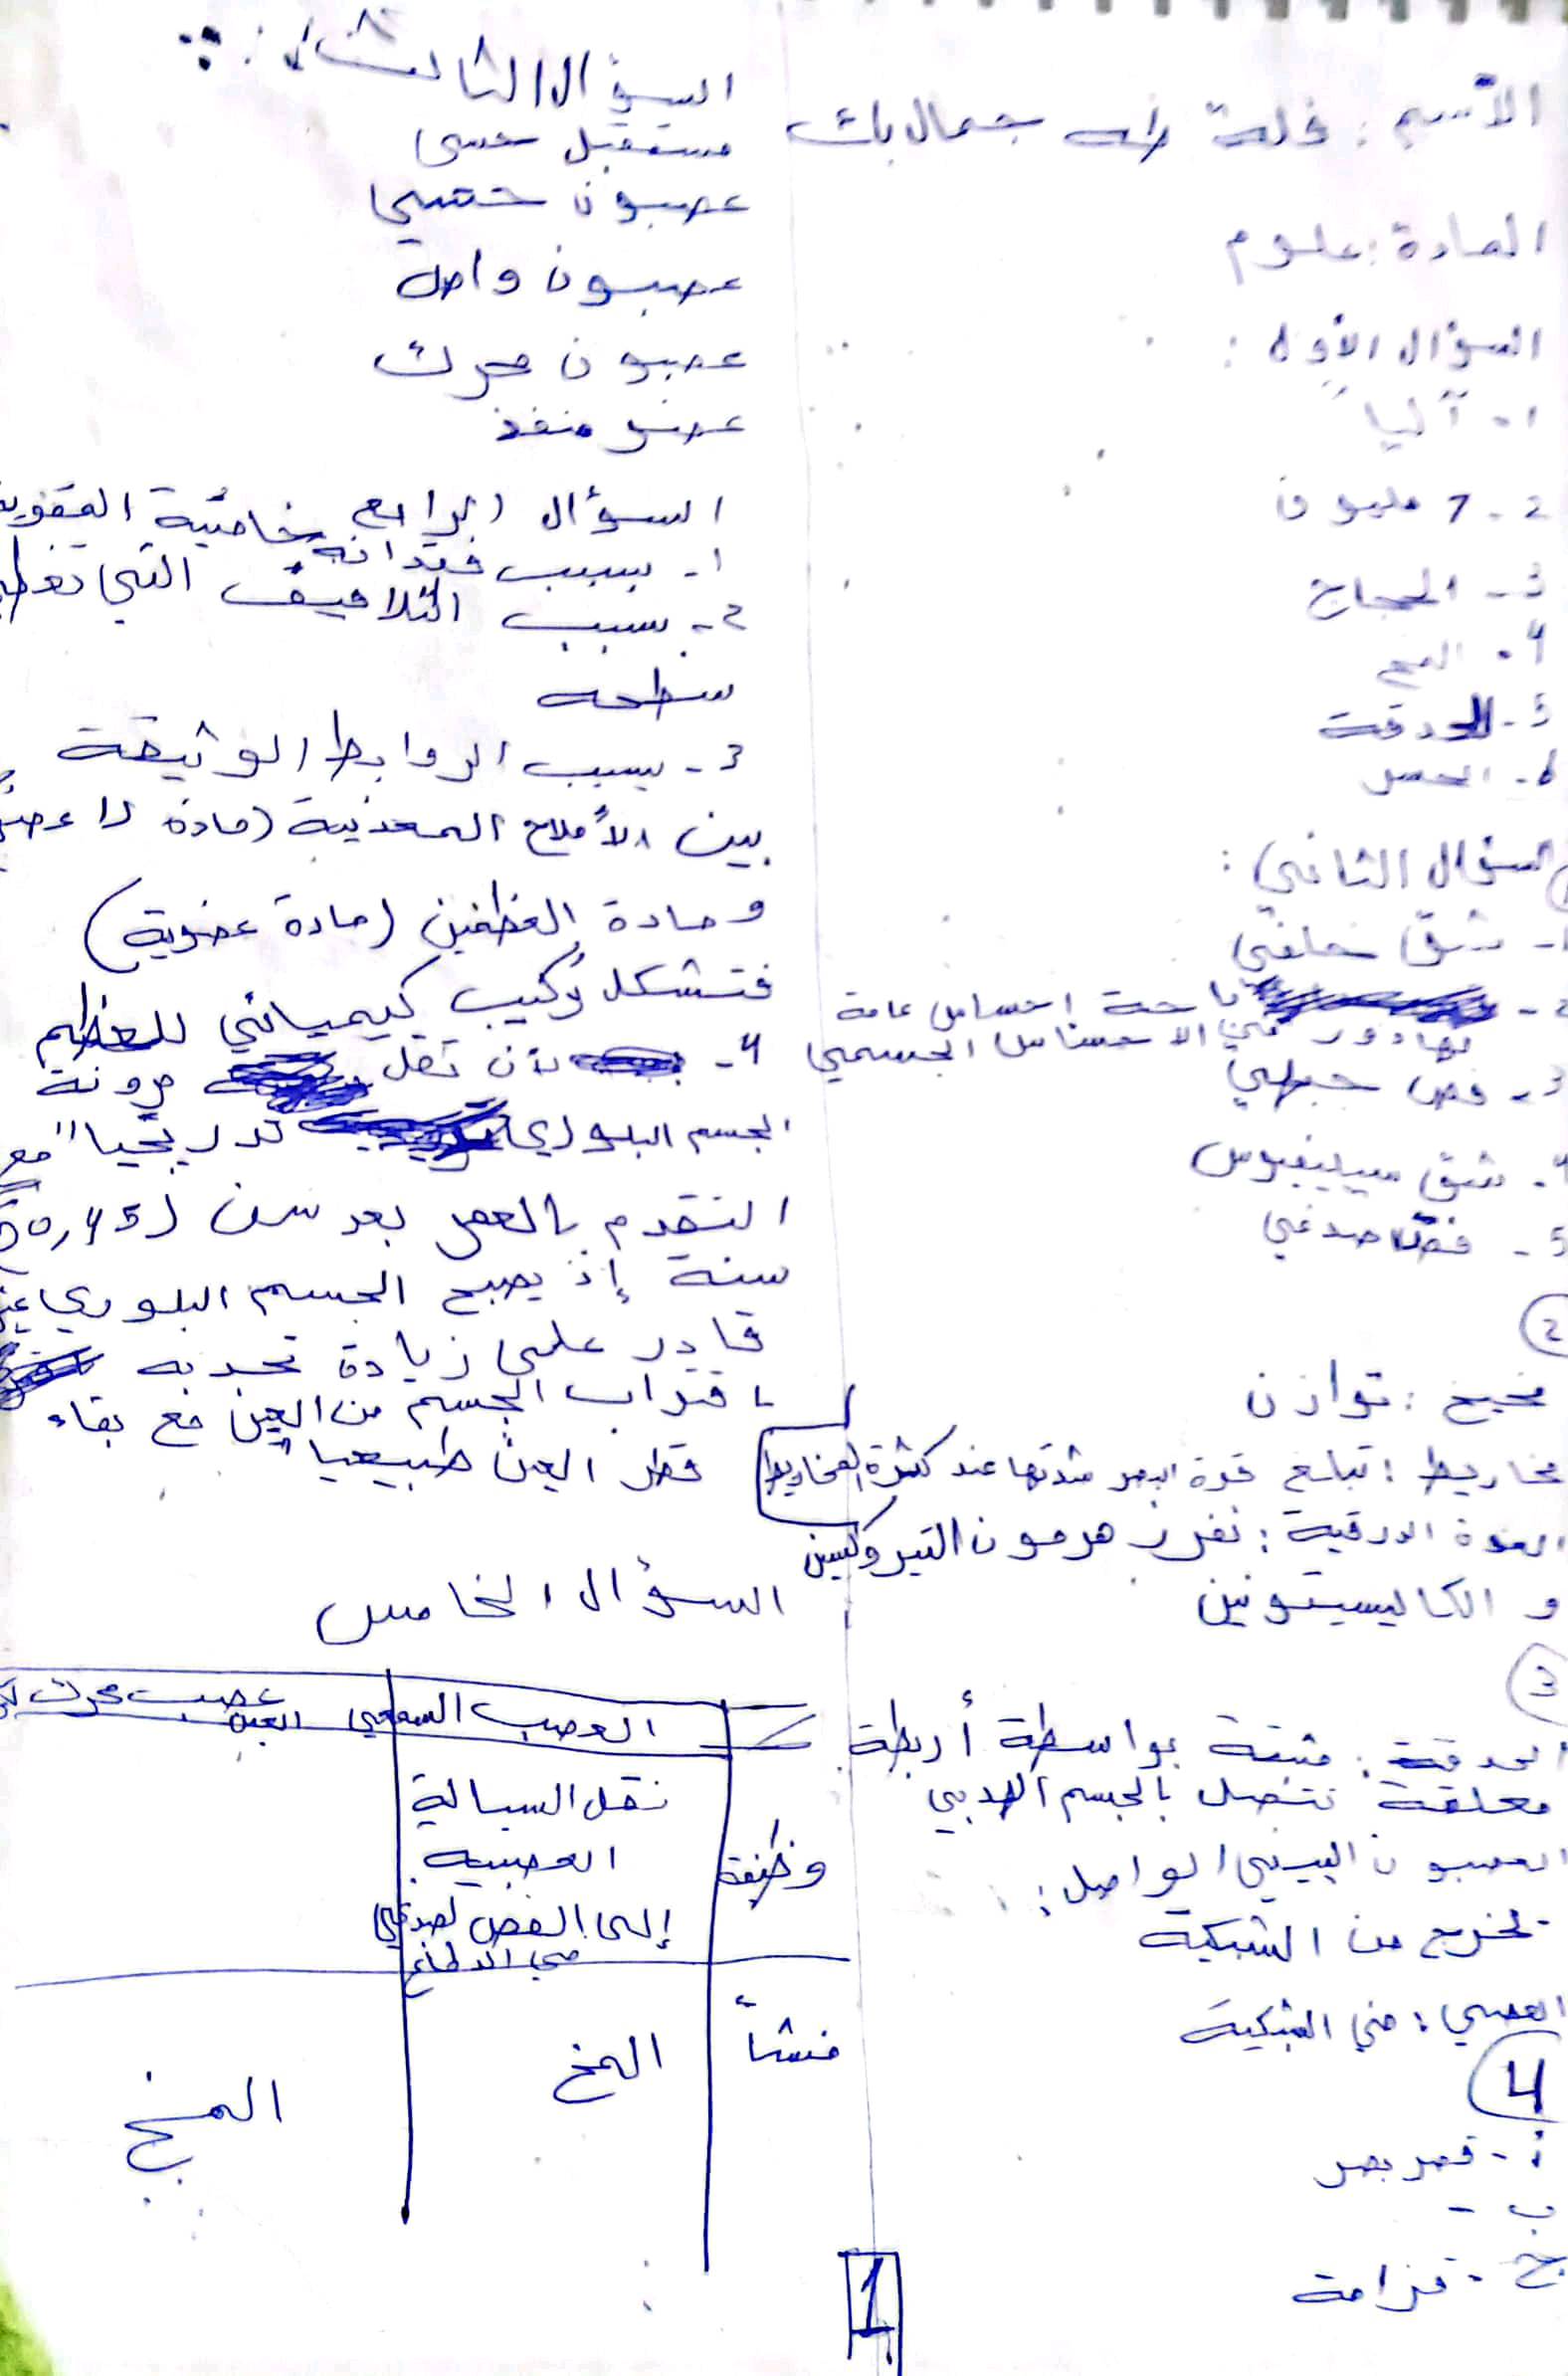 الأسم : خلة طه جمال باث
المادة : علوم
السؤال الأول :
1- آلياً
2- 7 مليون
3- الحجاج
4- المخ
5- الحدقة
6- الحس
السؤال الثاني :
1- شق خلفي
2- باحة احساس عامة
لها دور في الاحساس الجسمي
3- فص جبهي
4- شق سيلفيوس
5- فص صدغي
2
مخيخ : توازن
مخاريط : تبلغ قوة البصر شدتها عند كثرة المخاريط
الغدة الدرقية : تفرز هرمون التيروكسين
و الكاليسيتونين
3
الحدقة : مثبتة بواسطة أربطة
معلقة تتصل بالجسم الهدبي
العصبون البيني الواصل :
تخرج من الشبكية
العصي : في الشبكية
4
أ- قصر بصر
ب-
ج- قزامة
1
السؤال الثالث :
مستقبل حسي
عصبون حسي
عصبون واصل
عصبون محرك
عضو منفذ
السؤال الرابع
1- بسبب فقدانه خاصية العفوية
2- بسبب التلافيف التي تغطي
سطحه
3- بسبب الروابط الوثيقة
بين الأملاح المعدنية (مادة لا
ومادة العظمين (مادة عضوية)
فتشكل تركيب كيميائي للعظم
4- لأن تقل مرونة
الجسم البلوري تدريجياً مع
التقدم بالعمر بعد سن (45,
سنة إذ يصبح الجسم البلوري غير
قادر على زيادة تحدبه
باقتراب الجسم من العين مع بقاء
قطر العين طبيعياً
السؤال الخامس
العصب السمعي عصب محرك العين
وظيفة نقل السيالة
العصبية
إلى الفص الصدغي
في الدماغ
منشأ المخ المخ